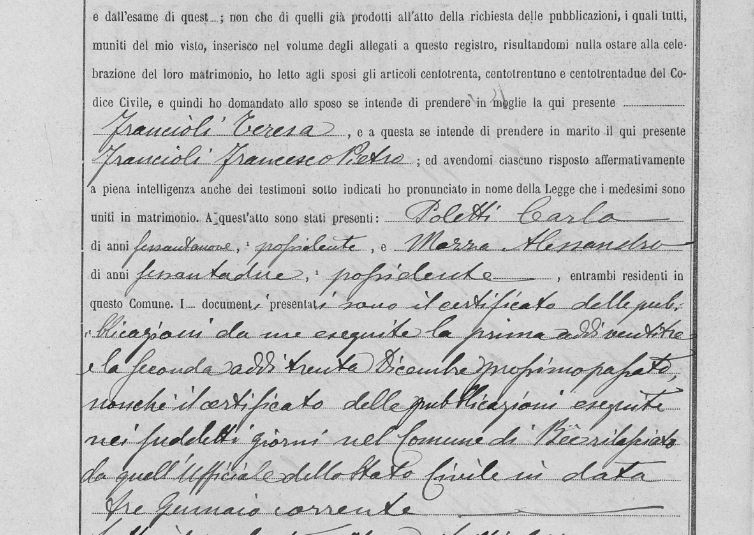 e dall'esame di quest...; non che di quelli già prodotti all'atto della richiesta delle pubblicazioni, i quali tutti,
muniti del mio visto, inserisco nel volume degli allegati a questo registro, risultandomi nulla ostare alla cele-
brazione del loro matrimonio, ho letto agli sposi gli articoli centotrenta, centotrentuno e centotrentadue del Co-
dice Civile, e quindi ho domandato allo sposo se intende di prendere in moglie la qui presente
Francioli Teresa, e a questa se intende di prendere in marito il qui presente
Francioli Francesco Pietro; ed avendomi ciascuno risposto affermativamente
a piena intelligenza anche dei testimoni sotto indicati ho pronunciato in nome della Legge che i medesimi sono
uniti in matrimonio. A quest'atto sono stati presenti: Poletti Carlo
di anni sessantanove, possidente, e Mazza Alessandro
di anni sessantadue, possidente, entrambi residenti in
questo Comune. I documenti presentati sono il certificato delle pub-
blicazioni da me eseguite la prima addi ventitre
e la seconda addi trenta Dicembre prossimo passato,
nonchè il certificato delle pubblicazioni eseguite
nei suddetti giorni nel Comune di Bèe rilasciato
da quell'Ufficiale dello Stato Civile in data
tre Gennaio corrente